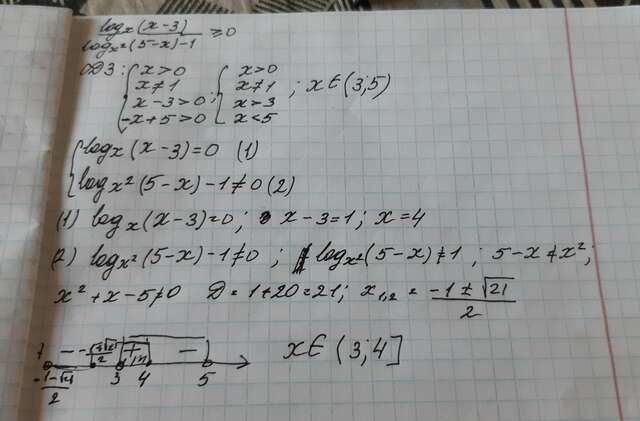 log_x(x-3) / log_x²(5-x)-1 ≥0
ОДЗ: { x>0 ; { x>0 ; x∈(3;5)
x≠1 x≠1
x-3>0 x>3
-x+5>0 x<5
{ log_x(x-3)=0 (1)
log_x²(5-x)-1≠0 (2)
(1) log_x(x-3)=0; x-3=1; x=4
(2) log_x²(5-x)-1≠0 ; log_x²(5-x)≠1 ; 5-x≠x²;
x²+x-5≠0 D=1+20=21; x₁,₂ = (-1±√21)/2
- + -
3 4 5 x∈(3;4]